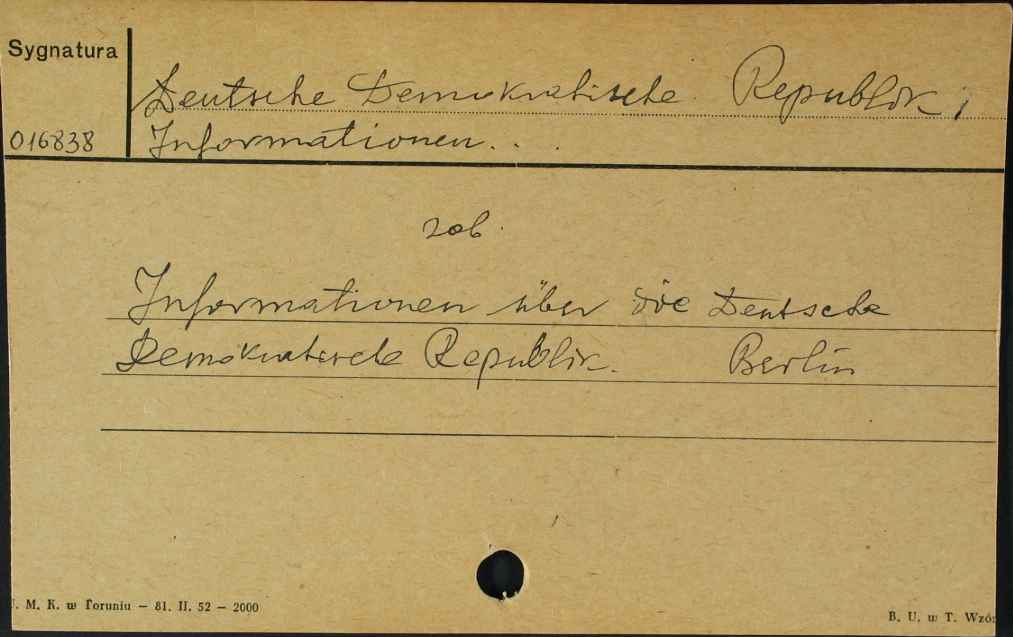 Sygnatura
Deutsche Demokratische Republik,
016838
Informationen...
zob.
Informationen über die Deutsche
Demokratische Republik. Berlin
. M. K. w Toruniu – 81. II. 52 – 2000
B. U. w T. Wzór